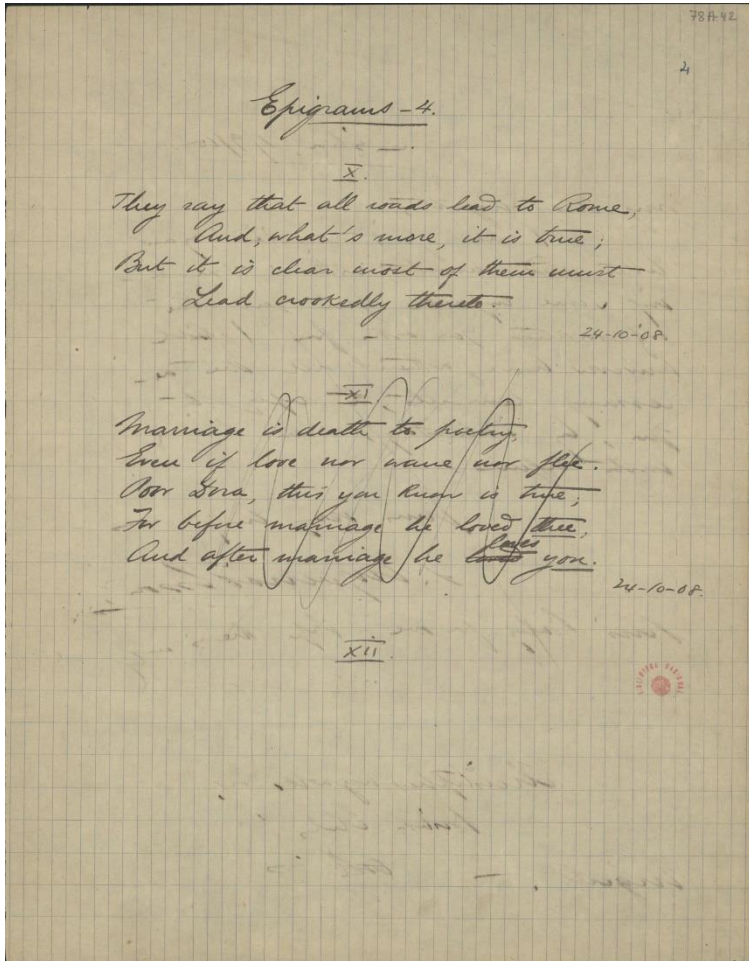 78A-42
4
Epigrams - 4.
X.
They say that all roads lead to Rome,
And, what's more, it is true;
But it is clear most of them must
Lead crookedly thereto.
24-10-08.
XI
Marriage is death to poetry,
Even if love nor wane nor flee.
Poor Dora, this you know is true;
For before marriage he loved thee,
And after marriage he loves you.
24-10-08.
XII.